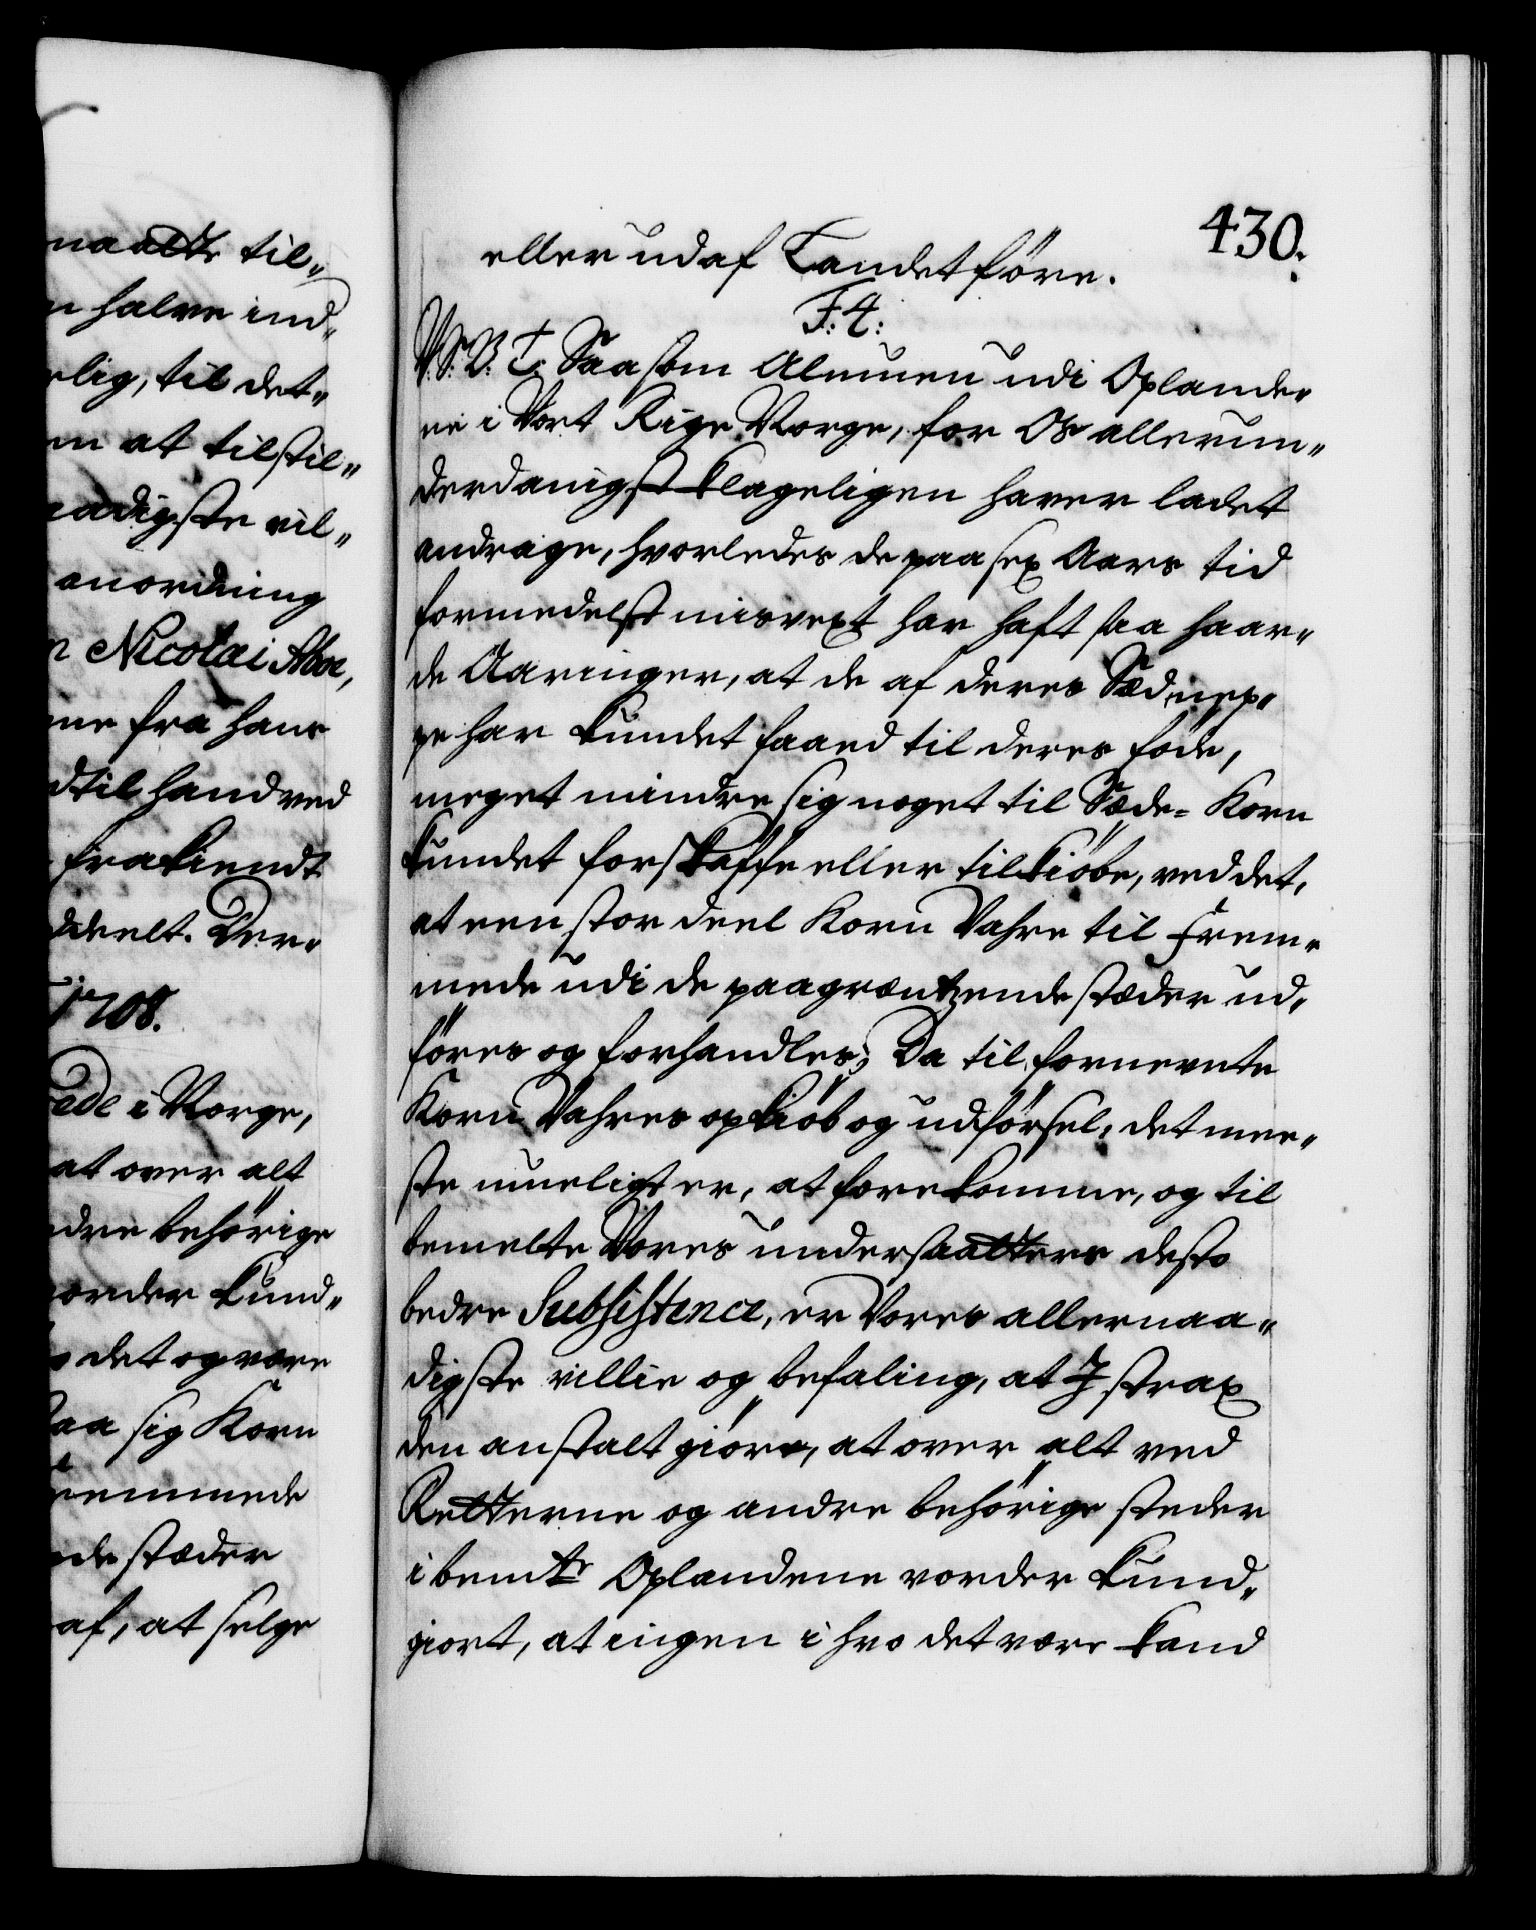 naadte til„
n halve ind„
rlig, til det„
em at tilstil„
aadigste vil„
anordning
n Nicolai Aboe,
ne fra hans
dtil hand ved
frakiendt
ddeelt. Der„
1708.
ede i Norge,
at over alt
dre behörige
vorder kund„
det og være
paa sig Korn
fremmede
nde stæder
af, at selge
430.
eller ud af Landet före.
F: 4:
V. S: V: T: Saasom Almuen udi Oplande„
ne i Vort Rige Norge, for Os allerun„
derdanigst klageligen haver ladet
andrage, hvorledes de paa sex Aars tid
formedelst misvext har haft saa haar„
de Aaringer, at de af deres Sæd nep„
pe har kundet faaed til deres föde,
meget mindre sig noget til Sæde= Korn
kundet forskaffe eller tilkiöbe, ved det,
at een stor deel Korn Vahre til Frem„
mede udi de paagræntzende stæder ud„
föres og forhandles; Da til fornevnte
Korn Vahres opkiöb og udförsel, det mee„
ste mueligt er, at forekomme, og til
bemelte Vores undersaatters desto
bedre Subsistence, er Vores allernaa„
digste villie og befaling, at I strax
den anstalt giöre, at over alt ved
Retterne og andre behörige steder
i bemte Oplandene vorder kund„
giort, at ingen i hvo det være kand